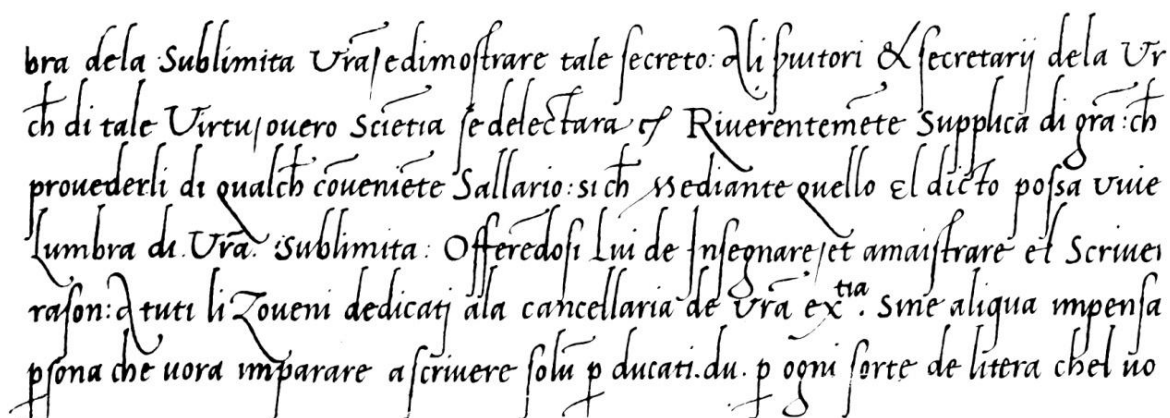 bra dela Sublimita Vr̃a/ edimostrare tale secreto: Ali scritori & secretarij dela Vr
ch̃ di tale Virtu/ ouero Sciẽtia se delectara Riuerentemẽte Supplica di gr̃a: ch̃
prouederli di qualch̃ cõueniẽte Sallario: si ch̃ Mediante quello El dicto possa viue
Lumbra di. Vr̃a. Sublimita: Offerẽdosi Lui de Insegnare/ et amaistrare el Scriuer
rason: A tuti li Zoueni dedicatj ala cancellaria de vr̃a ex.tia Sine aliqua impensa
ꝑsona che uora imparare a scriuere solũ ꝑ ducati .du. ꝑ ogni sorte de litera chel uo